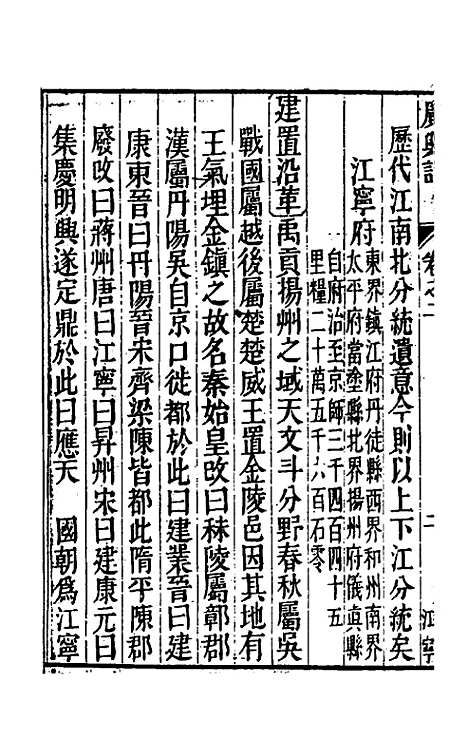 廣輿記
卷之二
二
江寧
歷代江南北分統遺意今則以上下江分統矣
江寧府
東界鎮江府丹徒縣西界和州南界
太平府當塗縣北界揚州府儀眞縣
自府治至京師三千四百四十五
里糧二十萬五千六百石零
建置沿革禹貢揚州之域天文斗分野春秋屬吳
戰國屬越後屬楚楚威王置金陵邑因其地有
王氣埋金鎮之故名秦始皇改曰秣陵屬鄣郡
漢屬丹陽吳自京口徙都於此曰建業晉曰建
康東晉曰丹陽晉宋齊梁陳皆都此隋平陳郡
廢改曰蔣州唐曰江寧曰昇州宋曰建康元曰
集慶明興遂定鼎於此曰應天　國朝爲江寧